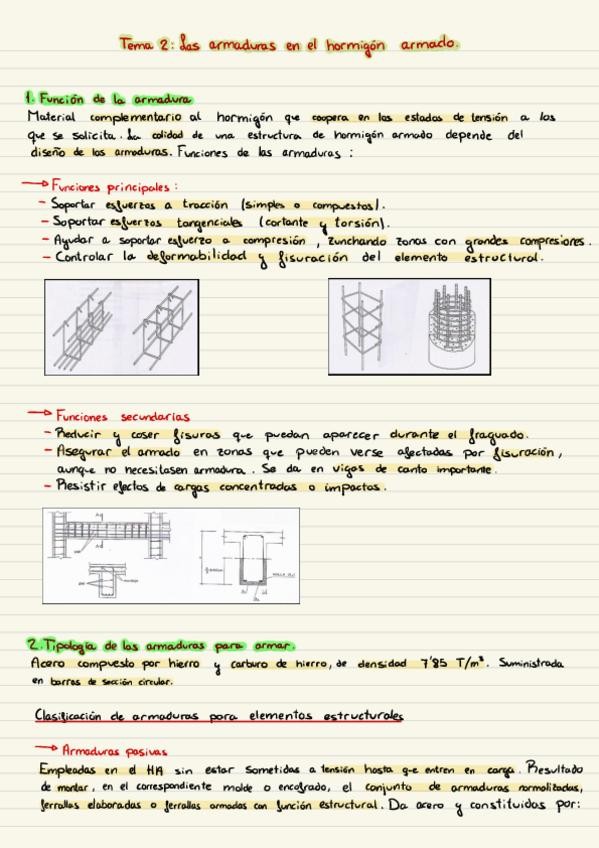 Tema 2: Las armaduras en el hormigón armado.
1. Función de la armadura
Material complementario al hormigón que coopera en los estados de tensión a los
que se solicita. La calidad de una estructura de hormigón armado depende del
diseño de las armaduras. Funciones de las armaduras :
→ Funciones principales :
- Soportar esfuerzos a tracción (simples o compuestos).
- Soportar esfuerzos tangenciales (cortante y torsión).
- Ayudar a soportar esfuerzo a compresión , zunchando zonas con grandes compresiones.
- Controlar la deformabilidad y fisuración del elemento estructural.
→ Funciones secundarias
- Reducir y coser fisuras que puedan aparecer durante el fraguado.
- Asegurar el armado en zonas que pueden verse afectadas por fisuración,
aunque no necesitasen armadura . Se da en vigas de canto importante.
- Resistir efectos de cargas concentradas o impactos.
2. Tipología de las armaduras para armar.
Acero compuesto por hierro y carburo de hierro, de densidad 7'85 T/m³. Suministrada
en barras de sección circular.
Clasificación de armaduras para elementos estructurales
→ Armaduras pasivas
Empleadas en el HA sin estar sometidas a tensión hasta que entren en carga. Resultado
de montar, en el correspondiente molde o encofrado, el conjunto de armaduras normalizadas,
ferrallas elaboradas o ferrallas armadas con función estructural. Da acero y constituidas por: